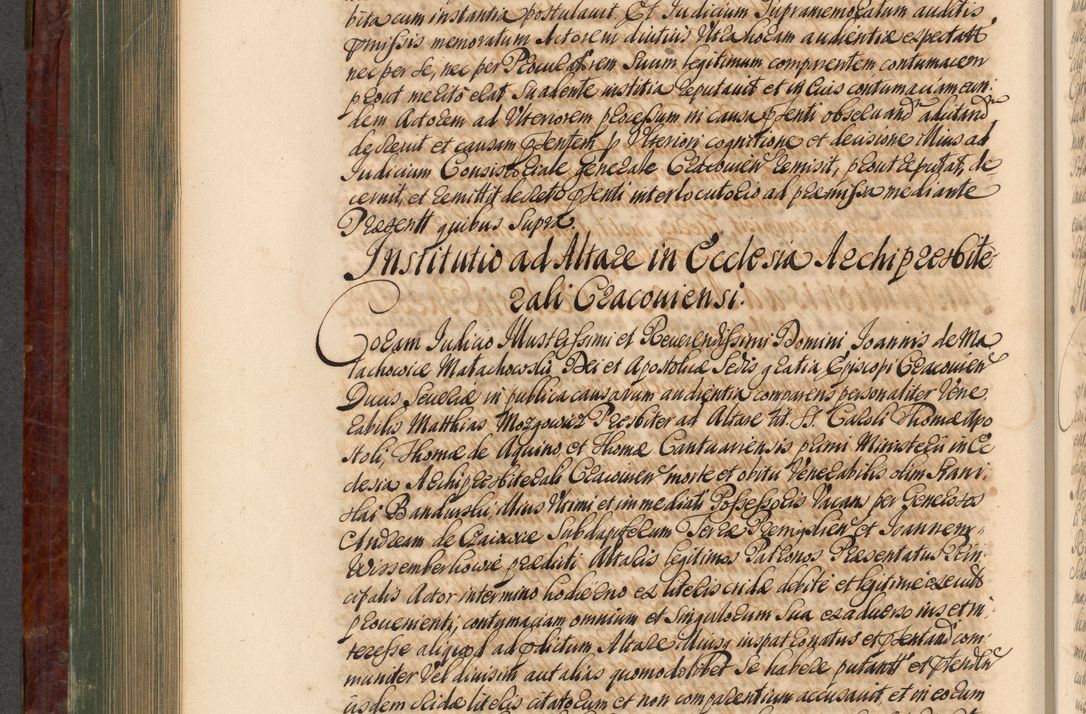 bita cum instantia postulavit Et Judicium Supramemoratum auditis
pmissis memoratum Actorem diutius Ultra horam audientiæ expectatt
nec per se, nec per Procuratorem suum legitimum comparentem contumacem
prout merito erat suadente iustitia reputavit et in eius contumaciam eun:
dem Actorem ad Ulteriorem processum in causa psenti observand adcitand
decrevit et causam psentem p Ulteriori cognitione et decisione illius ad
Judicium Consistoriale generale Cracovien remisit, prout reputat, de:
cernit, et remittit decreto psenti interlocutorio ad præmissa mediante
Præsentt quibus supra.
Institutio ad Altare in Ecclesia Archipresbite:
rali Cracoviensi.
Coram Judicio Illustrissimi et Reverendissimi Domini Joannis de Ma
łachowice Małachowski Dei et Apostolicæ Sedis gratia Episcopi Cracovien
Ducis Severiæ in publica causarum audientia comparens personaliter Vene
rabilis Matthias Mozgowicz Presbiter ad Altare tit. SS. Caroli Thomæ Apo
stoli, Thomæ de Aquino, et Thomæ Cantuariensis primi Ministerii in Ec
clesia Archipresbiterali Cracovien morte et obitu Venerabilis olim Stani:
slai Bandurski, illius Ultimi et immediati Possessoris Vacans per Generosos
Andream de Subdapiferum Terræ Premislien et Joannem
præditi Altaris legitimos Patronos Præsentatus Prin:
cipalis Actor in termino hodierno ex literis cridæ debite et legitime executt
provenienti, contumaciam omnium et singulorum sua ex adverso ius et in:
teresse aliquod ad pdictum Altare illiusq iuspatronatus et psentand com:
muniter Vel divisim aut alias quomodolibet se habere putantt et ptenden
iisdem cridæ literis citatorum et non comparentium accusavit, et in eorum